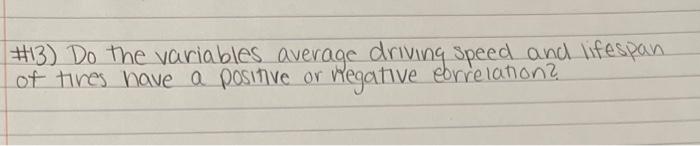 #13) Do the variables average driving speed and lifespan
of tires have a positive or negative correlation?